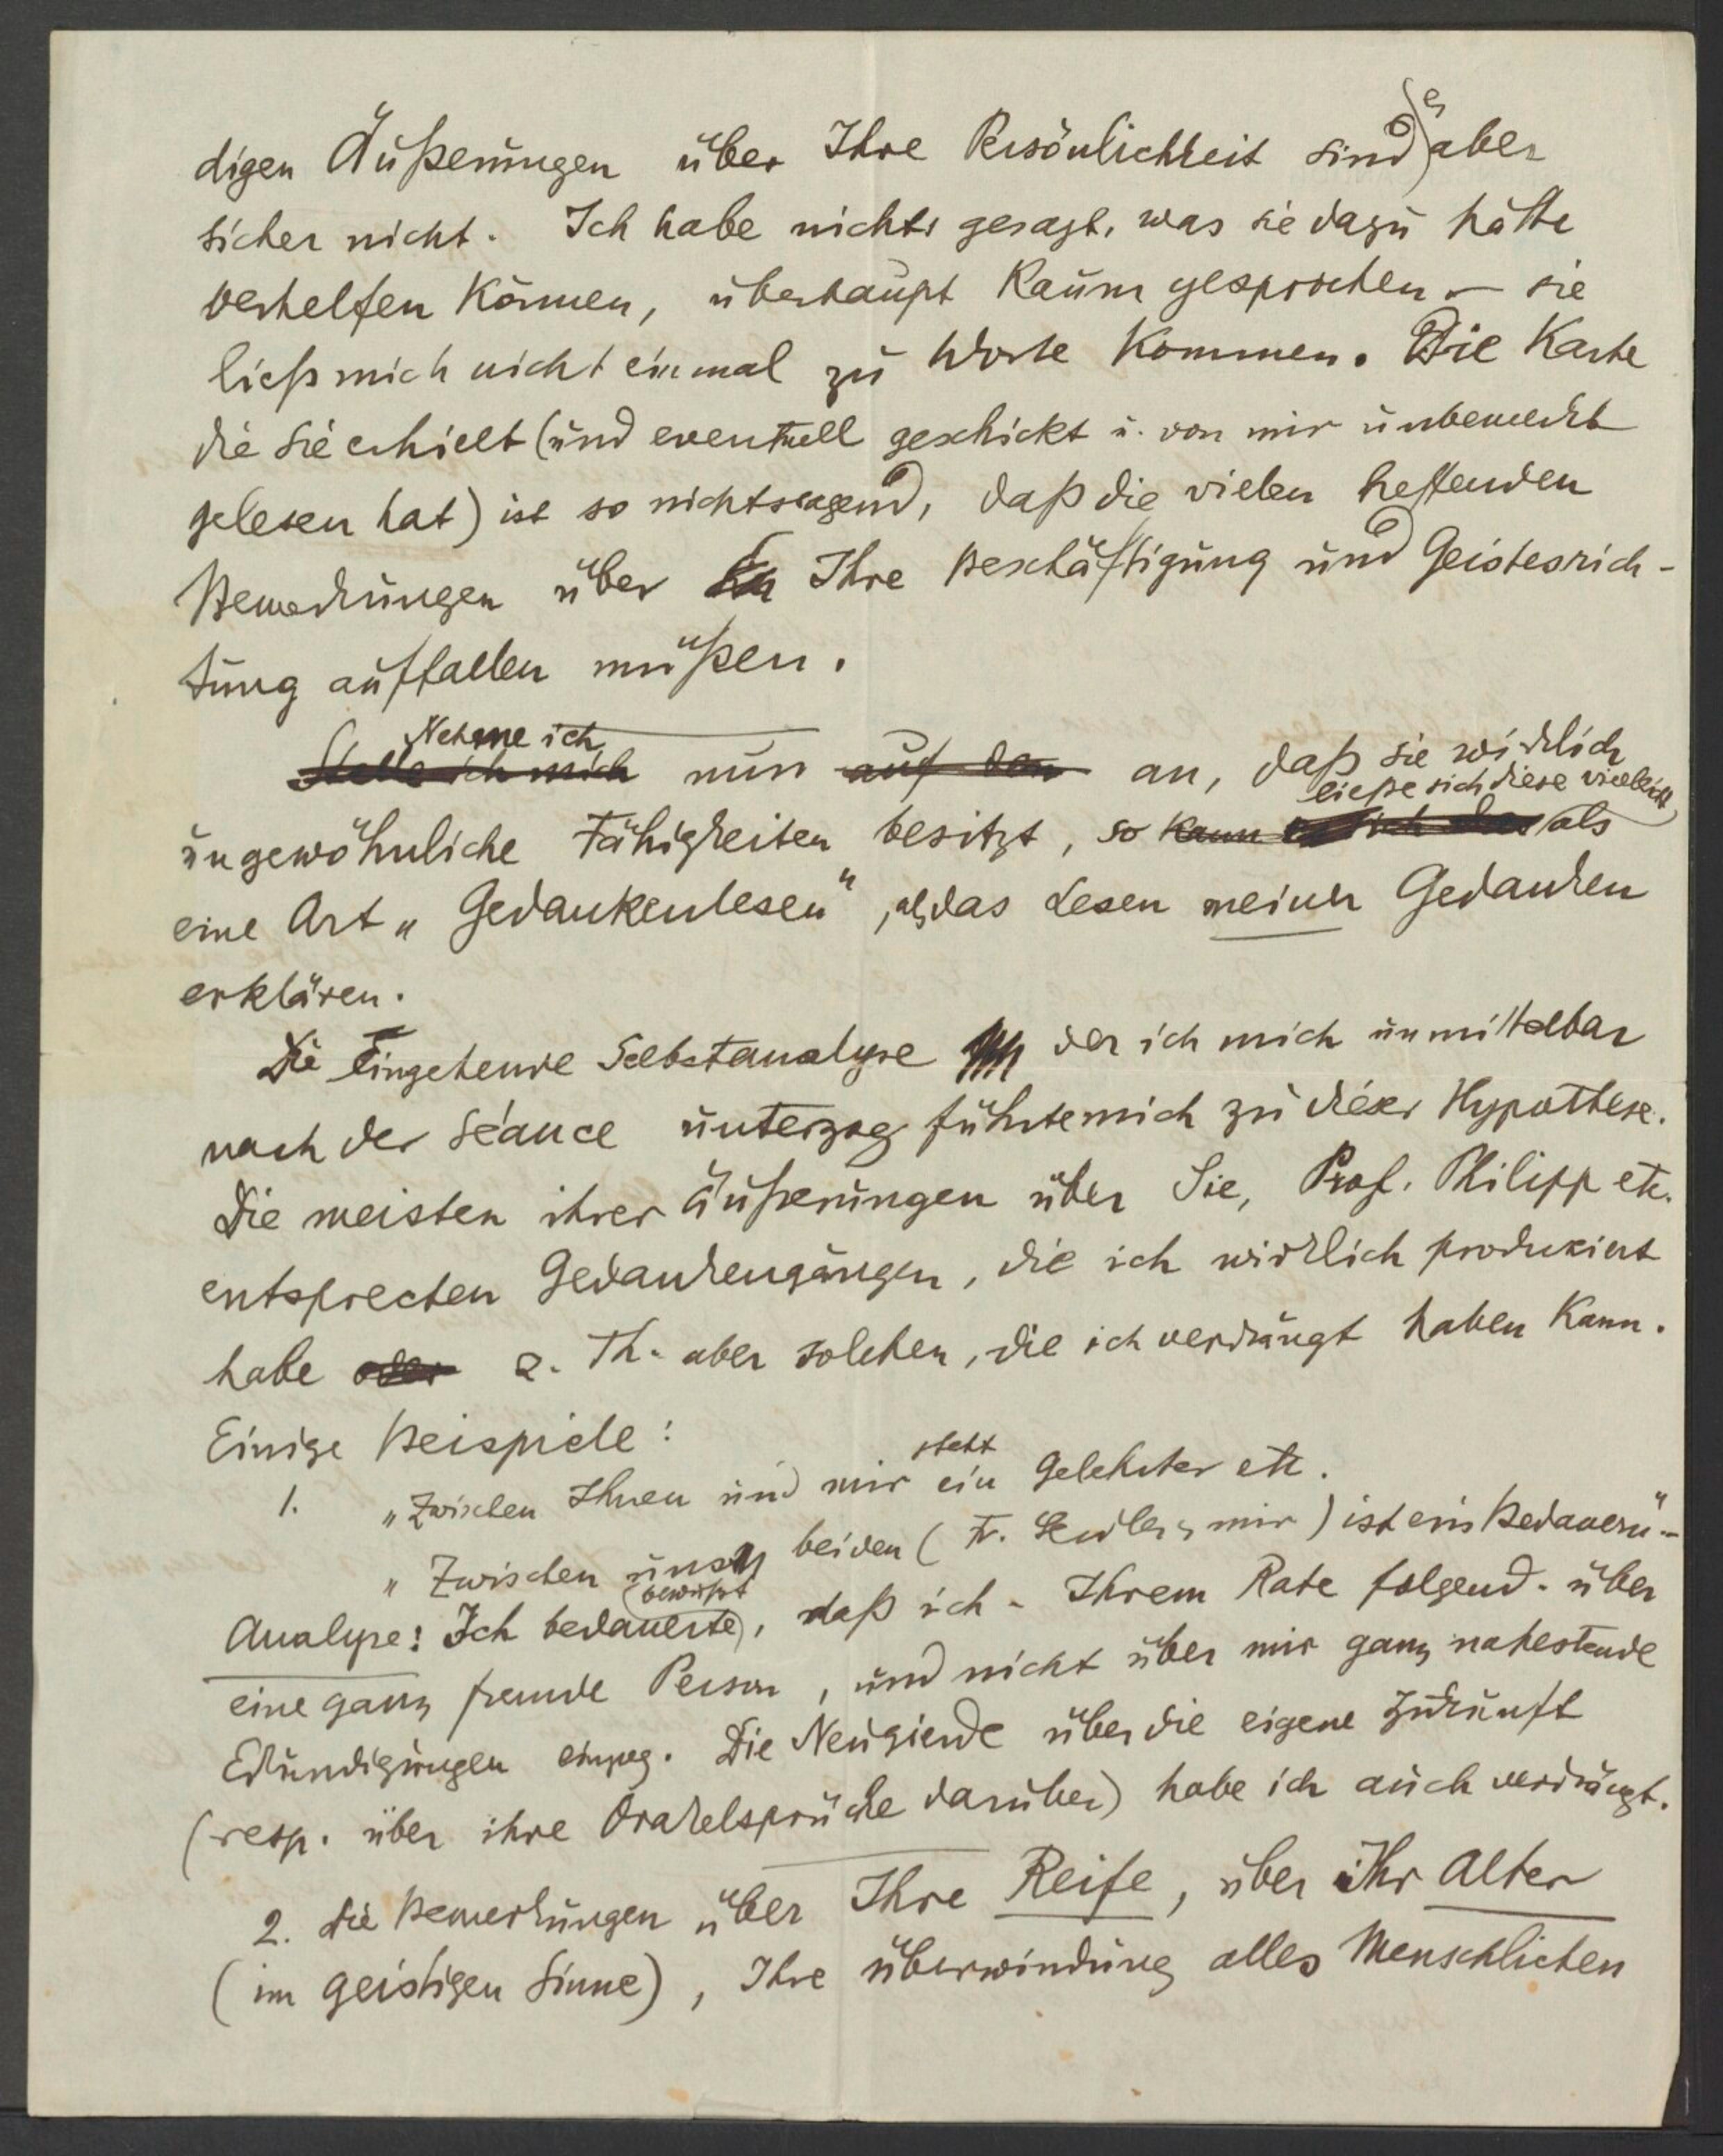 digen Äußerungen über Ihre Persönlichkeit sind es aber
sicher nicht. Ich habe nichts gesagt, was sie dazu hätte
verhelfen können, überhaupt kaum gesprochen – sie
ließ mich nicht einmal zu Worte kommen. Die Karte
die sie erhielt (und eventuell geschickt u. von mir unbemerkt
gelesen hat) ist so nichtssagend, daß die vielen treffenden
Bemerkungen über Ihre Beschäftigung und Geistesrich-
tung auffallen müßen.
Nehme ich
Stelle ich mich nun auf den an, daß sie wirklich
ließe sich diese vielleicht
ungewöhnliche Fähigkeiten besitzt, so kann als
eine Art „Gedankenlesen", als das Lesen meiner Gedanken
erklären.
Die Eingehende Selbstanalyse der ich mich unmittelbar
nach der Séance unterzog führte mich zu dieser Hypothese.
Die meisten ihrer Äußerungen über Sie, Prof. Philipp etc.
entsprechen Gedankengängen, die ich wirklich produziert
habe oder z. Th. aber solchen, die ich verdrängt haben kann.
Einige Beispiele:
steht
1. „Zwischen Ihnen und mir ein Gelehrter etc.
„Zwischen uns beiden (Fr. Seidler, mir) ist ein Bedauern"–
bewußt
Analyse: Ich bedauerte, daß ich – Ihrem Rate folgend – über
eine ganz fremde Person, und nicht über mir ganz nahestende
Erkundigungen einzog. Die Neugierde über die eigene Zukunft
(resp. über ihre Orakelsprüche darüber) habe ich auch verdrängt.
2. Die Bemerkungen über Ihre Reife, über Ihr Alter
(im geistigen Sinne), Ihre Überwindung alles Menschlichen